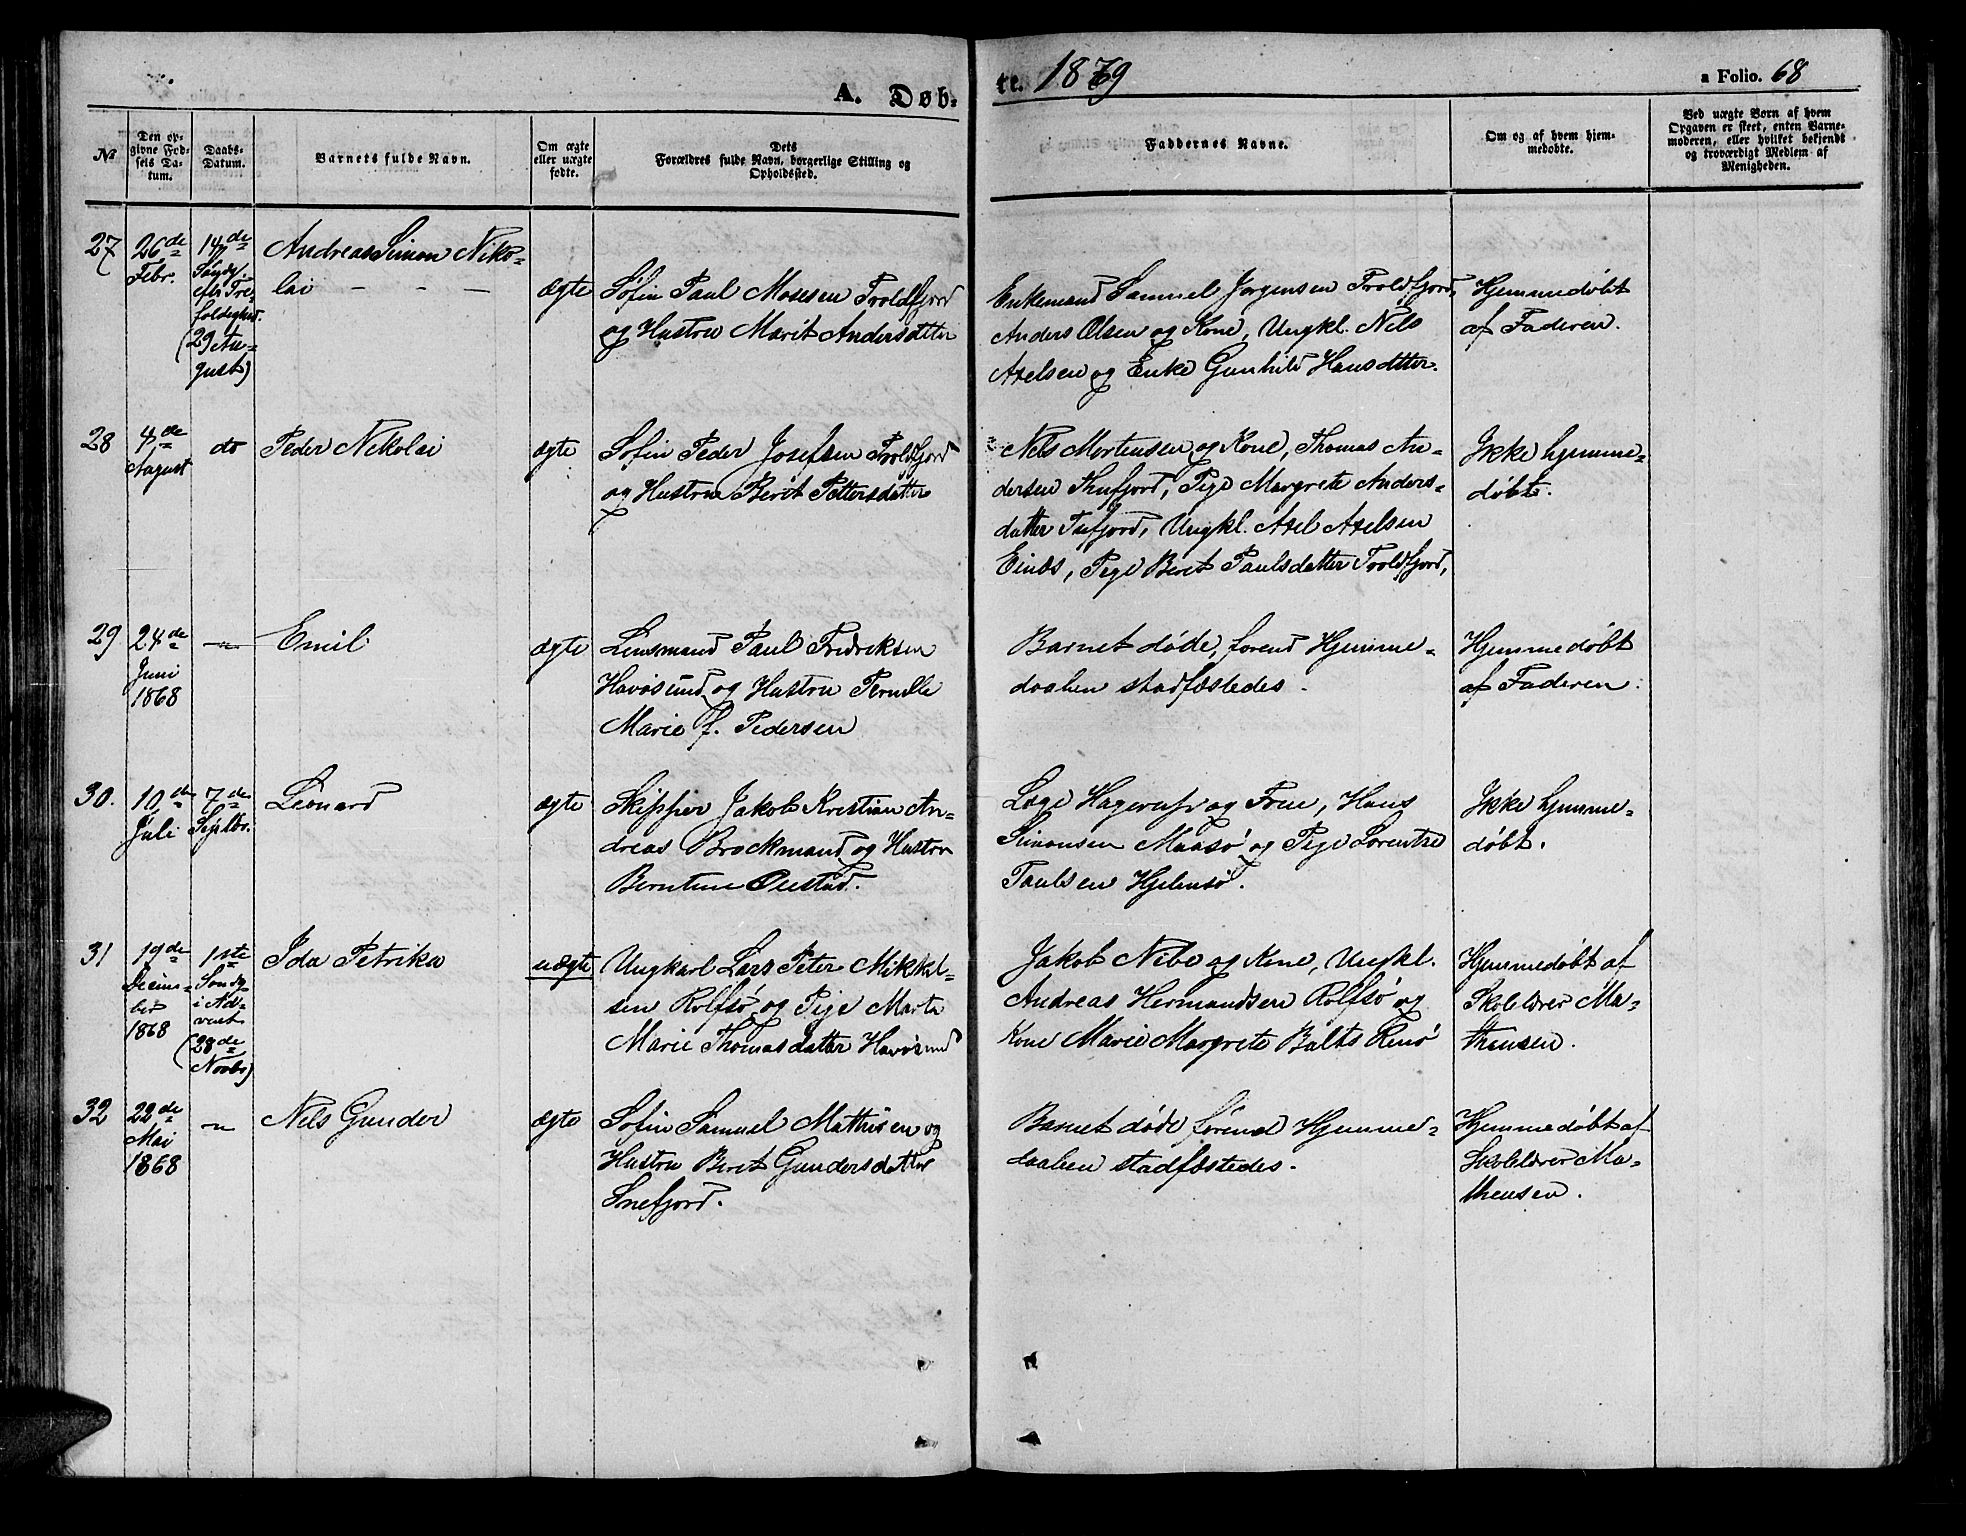 A. Døb-
te. 1869
a Folio. 68
No
Den op-
givne Fød-
sels Da-
tum.
Daabs-
Datum.
Barnets fulde Navn.
Om ægte
eller uægte
fødte.
Dets
Forældres fulde Navn, borgerlige Stilling og
Opholdssted.
Faddernes Navne.
Om og af hvem hjem-
medøbte.
Ved uægte Børn af hvem
Opgaven er skeet, enten Barne-
moderen, eller hvilket bekjendt
og troværdigt Medlem af
Menigheden.
27
26de
Febr.
14de
Søndg.
eft. Tre-
foldighed.
(29 Au-
gust)
Andreas Simon Niko-
lai - - -
ægte
Søfin Paul Mosesen Troldfjord
og Hustru Marit Andersdatter
Enkemand Samuel Jørgensen Troldfjord,
Anders Olsen og Kone, Ungkl. Nels
Axelsen og Enke Gunhild Hansdtter.
Hjemmedøbt
af Faderen.
28
4de
August
do
Peder Nikolai
ægte
Søfin Peder Josefsen Troldfjord
og Hustru Berit Pettersdatter
Nels Mortensen og Kone, Thomas An-
dersen Thufjord, Pige Margrete Anders-
datter Tufjord, Ungkl. Axel Axelsen
Einæs, Pige Beret Paulsdatter Troldfjord,
Ikke hjemme-
døbt.
29
24de
Juni
1868
-"-
Emil
ægte
Lensmand Paul Fredriksen
Havøsund og Hustru Pernille
Marie f. Pedersen
Barnet døde, førend Hjemme-
daaben stadfæstedes.
Hjemmedøbt
af Faderen.
30.
10de
Juli
7de
Septbr.
Leonard
ægte
Skipper Jakob Kristian An-
dreas Brockmand og Hustru
Berntine Quistad.
Læge Hagerup og Frue, Hans
Simonsen Maasø og Pige Lorentze
Paulsen Hjelmsø.
Ikke hjemme-
døbt.
31
19de
Decem-
ber
1868
1ste
Søndg.
i Ad-
vent
(28de
Novbr)
Ida Petrika
uægte
Ungkarl Lars Peter Mikkel-
sen Rolfsø og Pige Marta
Marie Thomasdatter Havøsund
Jakob Nibe og Kone, Ungkl.
Andreas Hermandsen Rolfsø og
Kone Marie Margrete Balts Renø
Hjemmedøbt af
Skolelærer Ma-
thensen.
32
22de
Mai
1868
-"-
Nels Gunder
ægte
Søfin Samuel Mathisen og
Hustru Beret Gundersdatter
Snefjord.
Barnet døde førend Hjemme-
daaben stadfæstedes.
Hjemmedøbt af
Skolelærer Ma-
thensen.